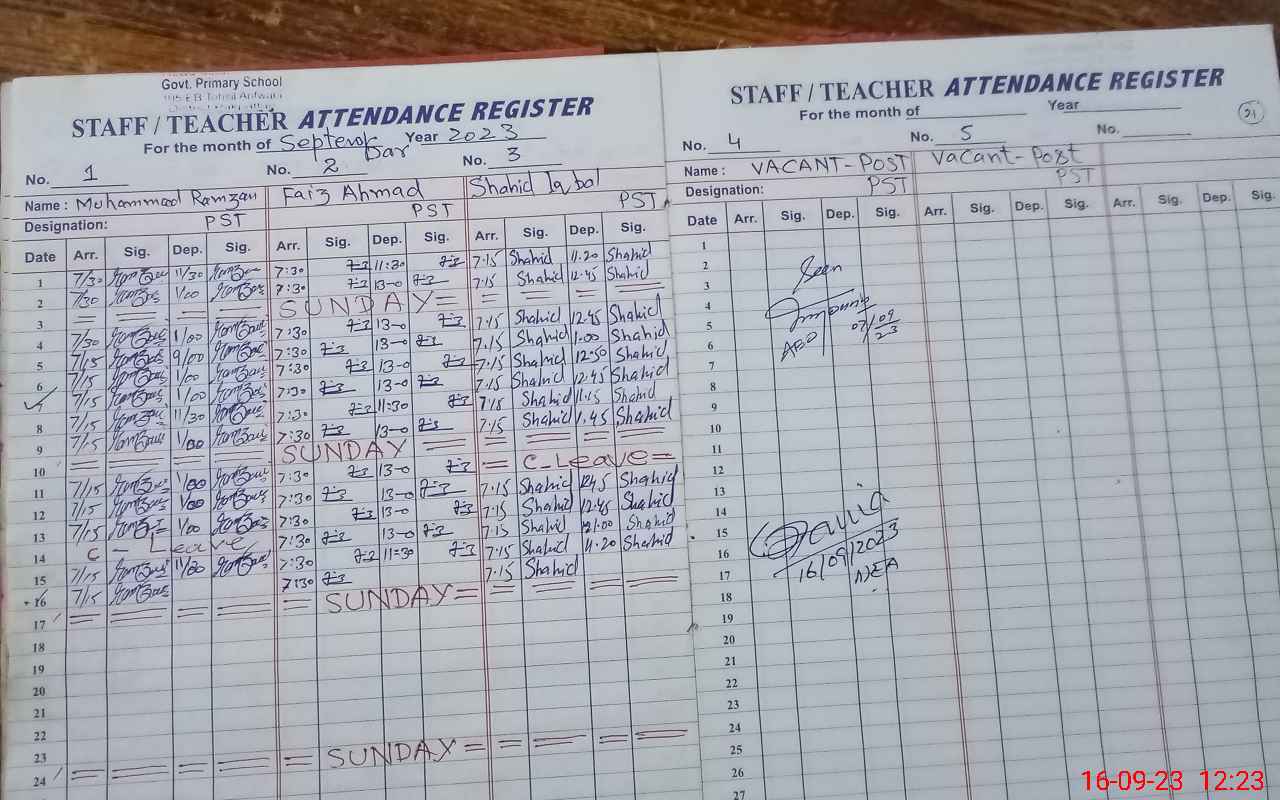 Govt. Primary School
STAFF / TEACHER ATTENDANCE REGISTER
For the month of September Year 2023
No. 1 No. 2 No. 3
Name : Muhammad Ramzan Faiz Ahmad Shahid Iqbal
Designation: PST PST PST
Date Arr. Sig. Dep. Sig. Arr. Sig. Dep. Sig. Arr. Sig. Dep. Sig.
1 7/30 11/30 7:30 11:30 7.15 Shahid 11.20 Shahid
2 7/30 1/00 7:30 13-0 7.15 Shahid 12.45 Shahid
3 SUNDAY
4 7/30 1/00 7:30 13-0 7.15 Shahid 12.45 Shahid
5 7/15 9/00 7:30 13-0 7.15 Shahid 1.00 Shahid
6 7/15 1/00 7:30 13-0 7.15 Shahid 12.50 Shahid
7 7/15 1/00 7:30 13-0 7.15 Shahid 12.45 Shahid
8 7/15 11/30 7:30 11:30 7.15 Shahid 11.15 Shahid
9 7/15 1/00 7:30 13-0 7.15 Shahid 1.45 Shahid
10 SUNDAY
11 7/15 1/00 7:30 13-0 C-Leave
12 7/15 1/00 7:30 13-0 7.15 Shahid 12.45 Shahid
13 7/15 1/00 7:30 13-0 7.15 Shahid 12.45 Shahid
14 C - Leave 7:30 13-0 7.15 Shahid Shahid
15 7/15 11/30 7:30 11:30 7.15 Shahid 11.20 Shahid
16 7/15 7:30 7.15 Shahid
17 SUNDAY
18
19
20
21
22
23
24 SUNDAY
STAFF / TEACHER ATTENDANCE REGISTER
For the month of Year
No. 4 No. 5 No.
Name : VACANT-POST Vacant-Post
Designation: PST PST
Date Arr. Sig. Dep. Sig. Arr. Sig. Dep. Sig. Arr. Sig. Dep. Sig.
1
2
3 Seen
4
5
6 AEO 07/09/23
7
8
9
10
11
12
13
14
15
16
17 16/09/2023
18
19
20
21
22
23
24
25
26
27
16-09-23 12:23